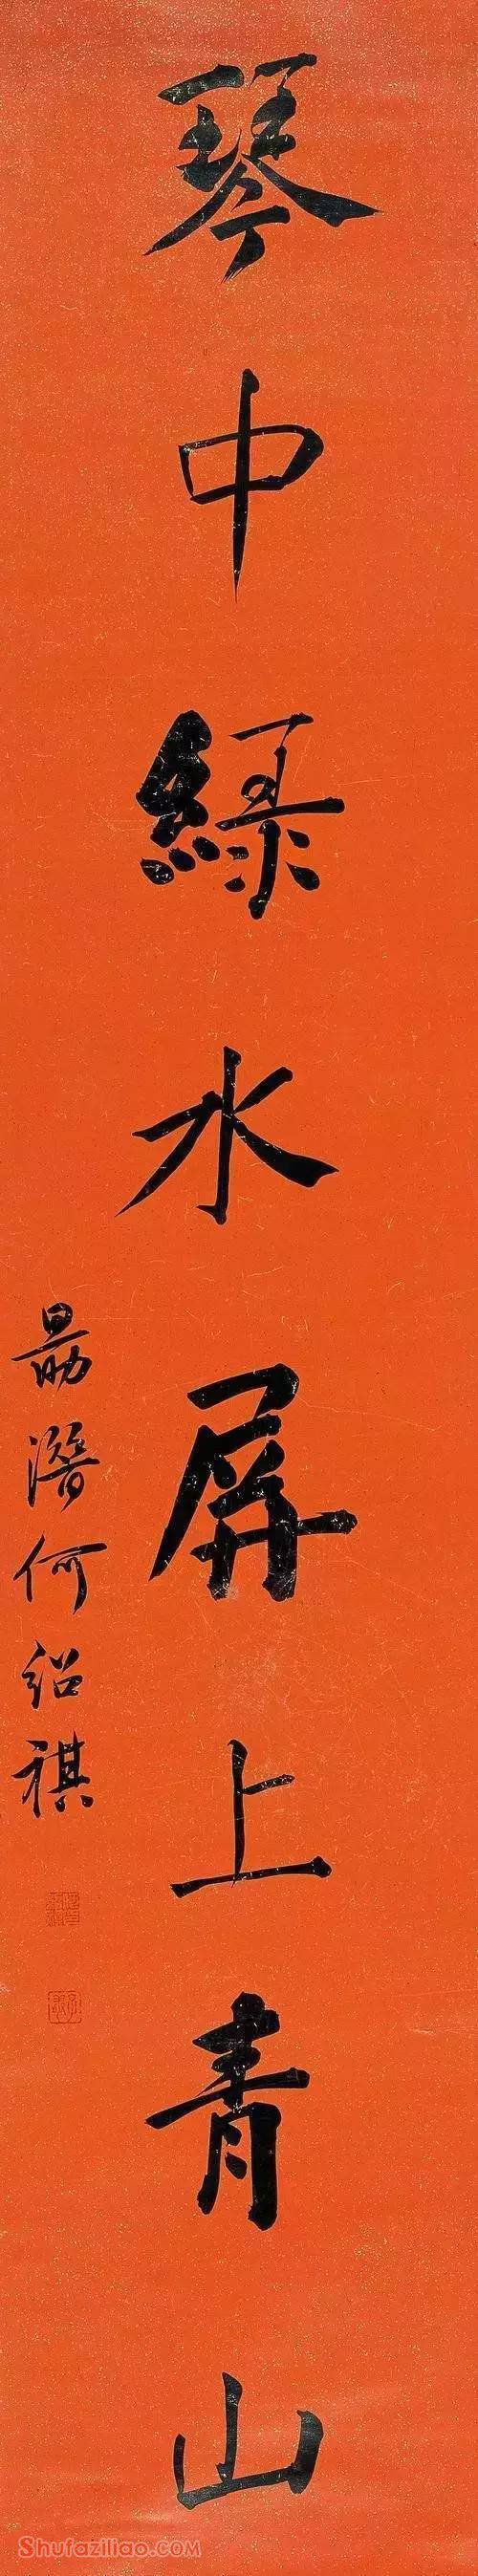 琴中綠水屏上青山
勗潛何紹祺
Shufaziliao.COM